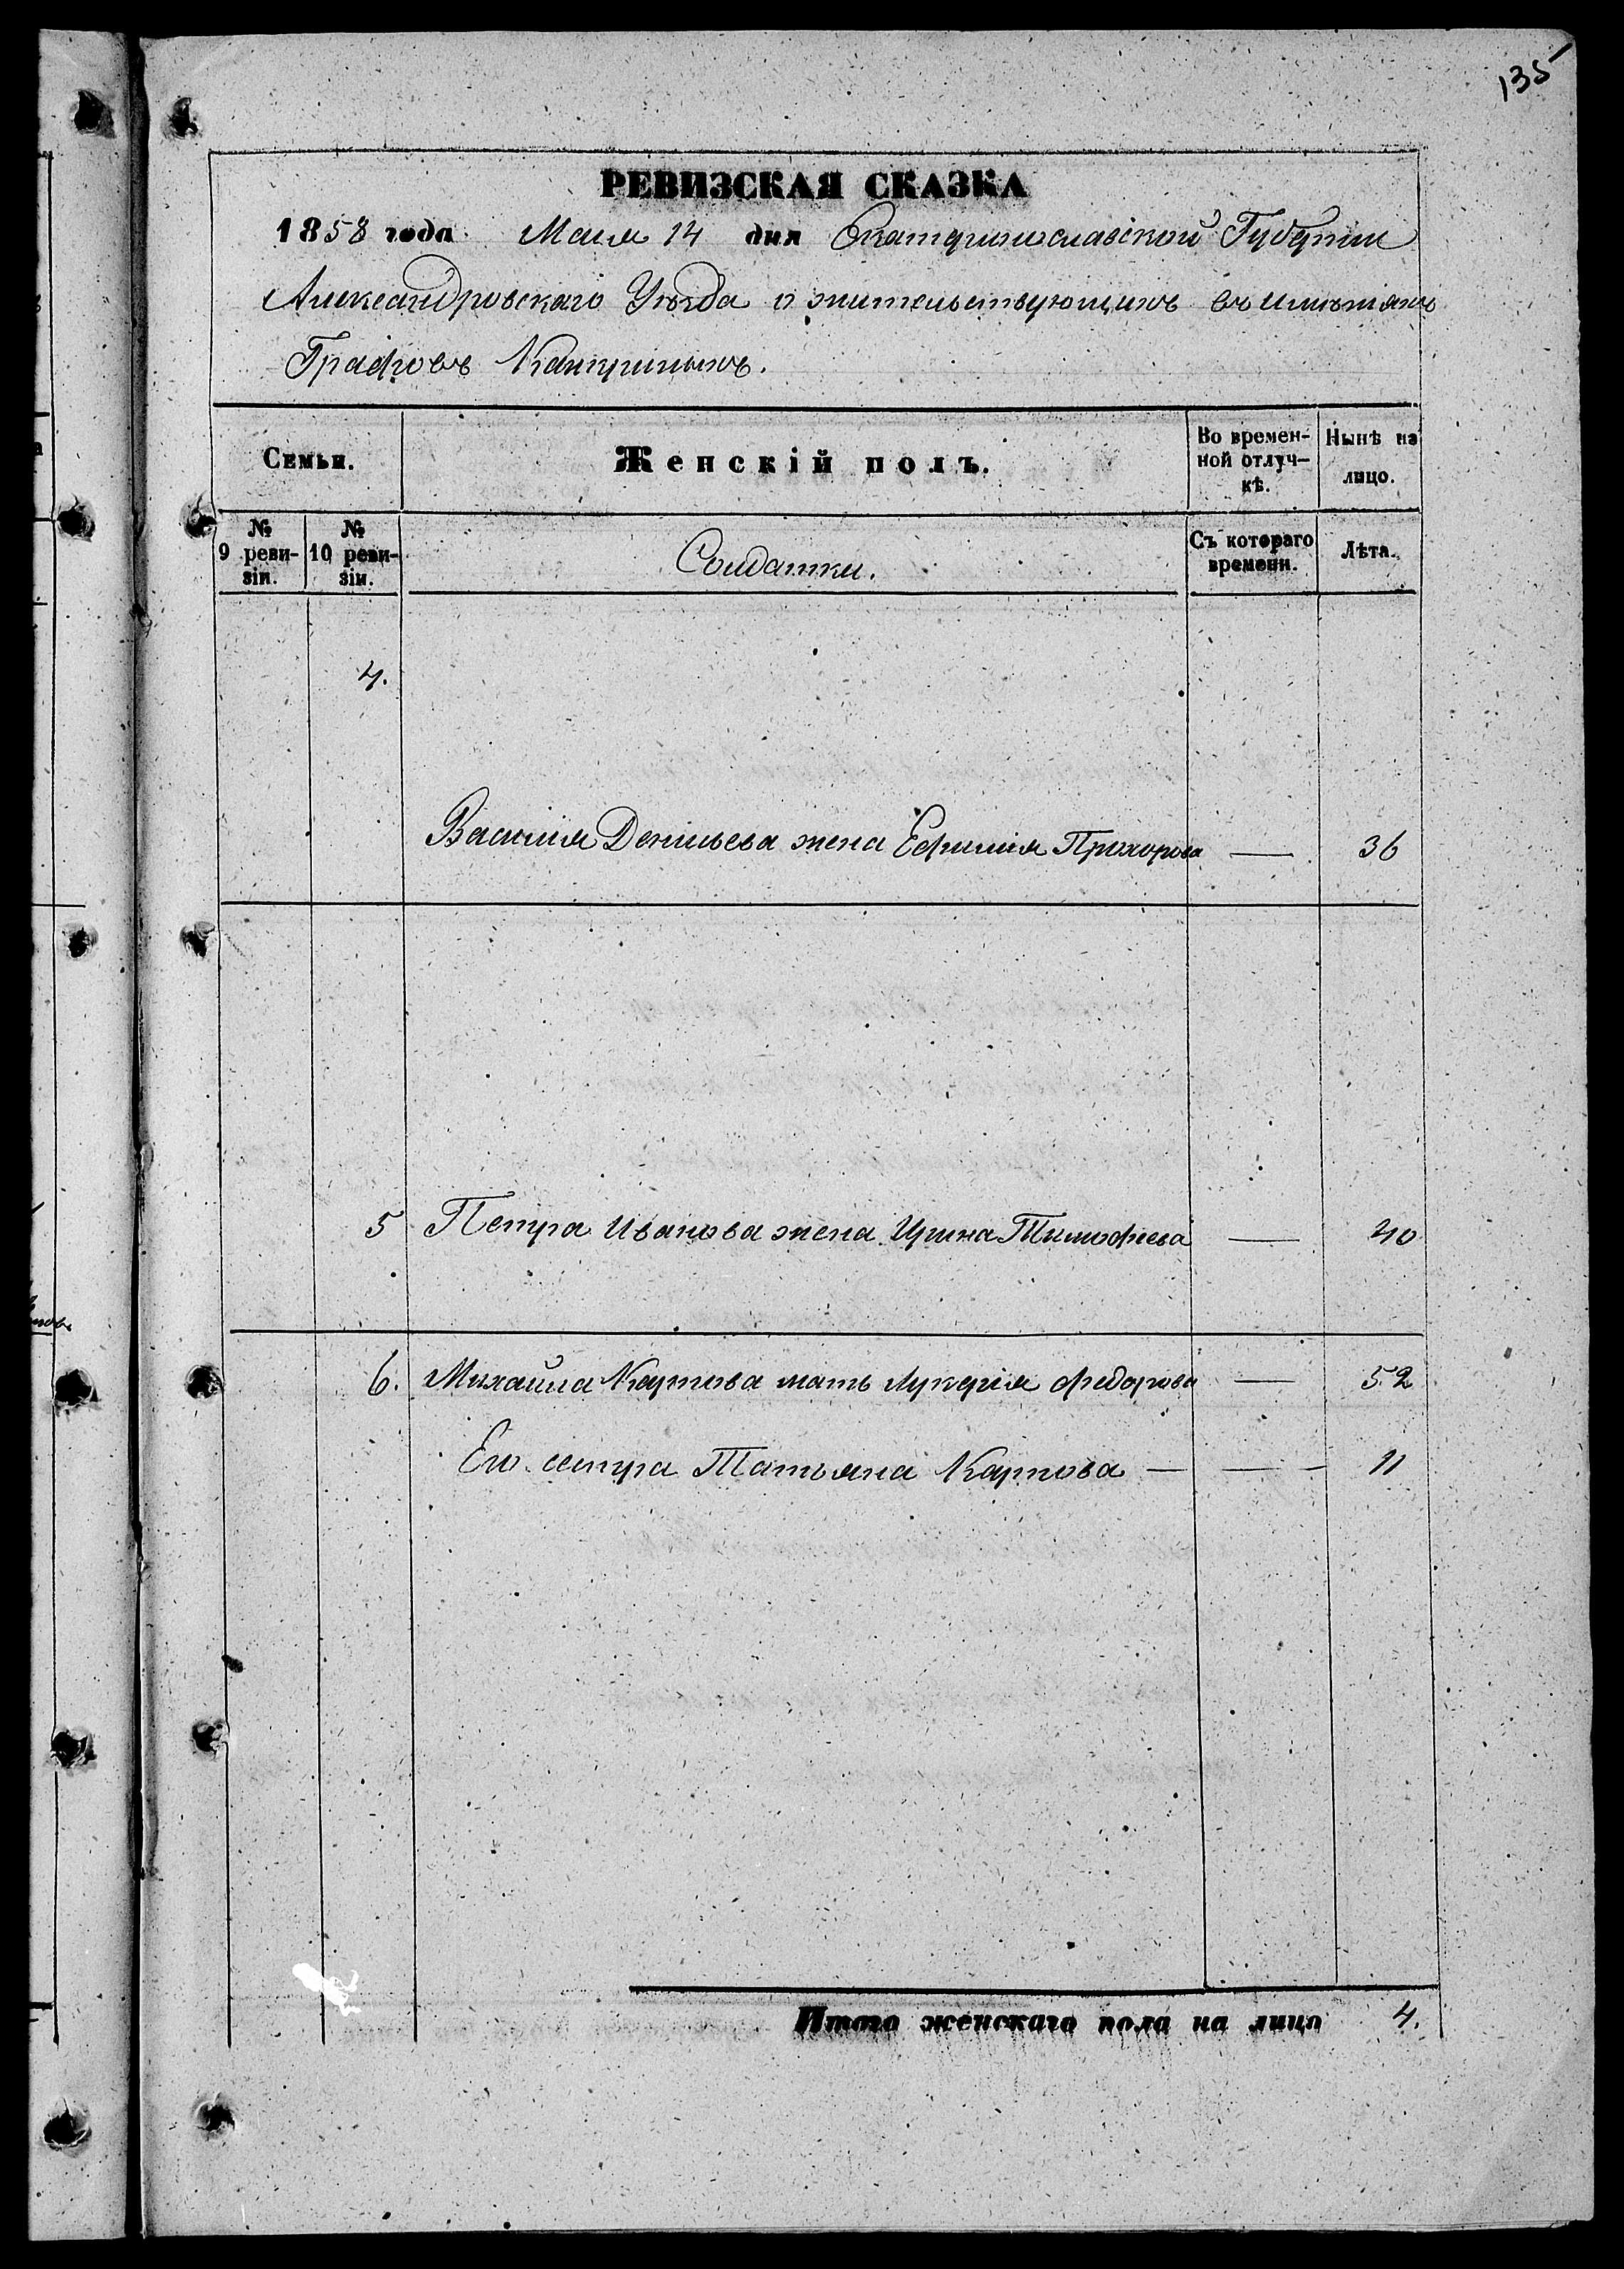 135
РЕВИЗСКАЯ СКАЗКА
1858 года Маія 14 дня Екатеринославской Губерніи
Александровскаго Уѣзда о жительствующихъ въ имѣніяхъ
Графовъ Канкриныхъ.
Семьи. Женскій полъ. Во времен-ной отлуч-кѣ. Нынѣ на лицо.
№ 9 реви-зіи. № 10 реви-зіи. Солдатки. Съ котораго времени. Лѣта.
4.
Василія Денисьева жена Ефимія Прохорова — 36
5 Петра Иванова жена Ирина Тимофеева — 40
6. Михайла Карпова мать Лукерія Федорова — 52
Его сестра Татьяна Карпова — — 11
Итого женскаго пола на лицо 4.